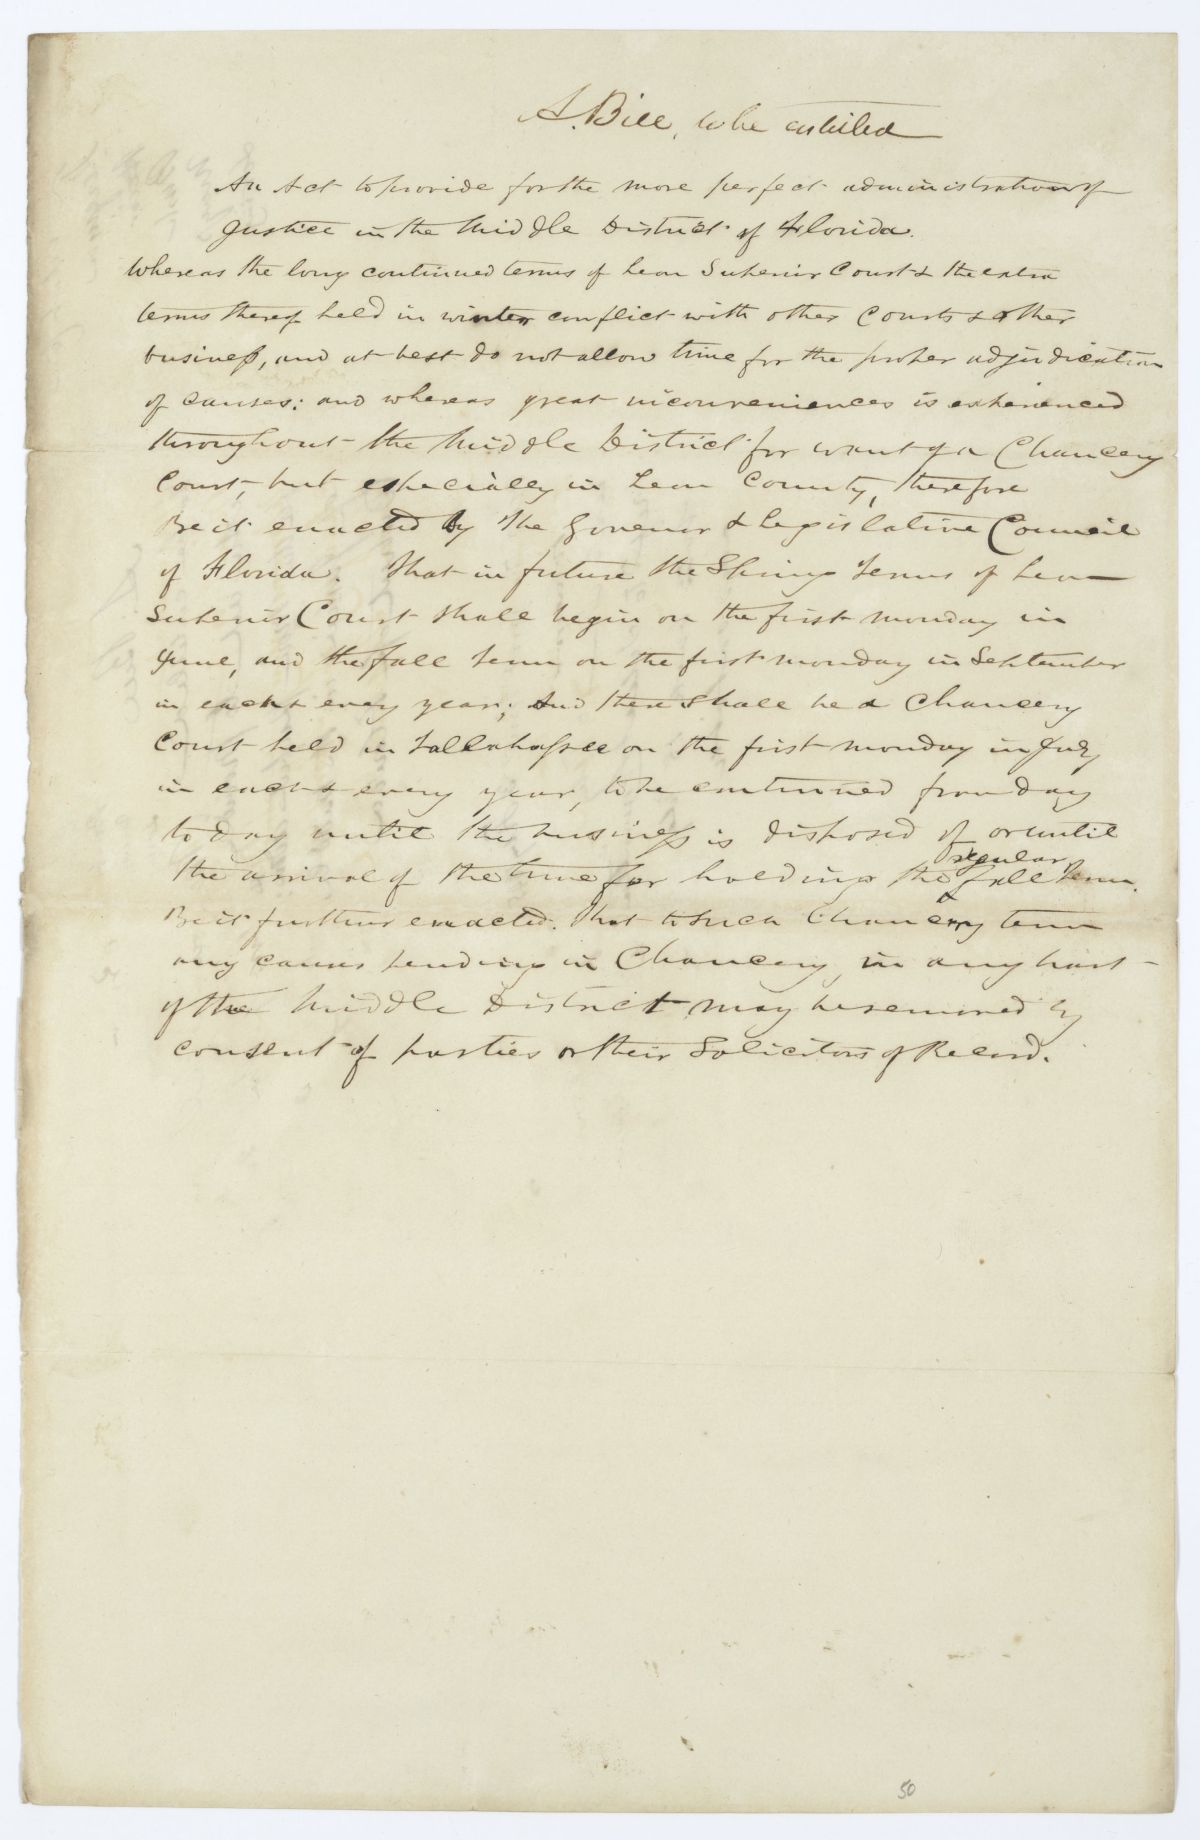 A. Bill, to be entitled
An Act to provide for the more perfect administration of
Justice in the Middle District of Florida.
Whereas the long continued terms of Leon Superior Court & the extra
terms thereof held in winter conflict with other Courts & other
business, and at best do not allow time for the proper adjudication
of causes; and whereas great inconveniences is experienced
throughout the Middle District for want of a Chancery
Court, but especially in Leon County, therefore
Be it enacted by the Govenor & Legislative Council
of Florida. That in future the Spring Terms of Leon
Superior Court shall begin on the first monday in
June, and the fall term on the first monday in September
in each & every year; And there shall be a Chancery
Court held in Tallahassee on the first monday in July
in each & every year, to be continued from day
to day until the business is disposed of or until
regular
the arrival of the time for holding the fall Term.
Be it further enacted. That to such Chancery term
any causes pending in Chancery in any part
of the Middle District may be removed by
consent of parties or their Solicitors of Record.
50